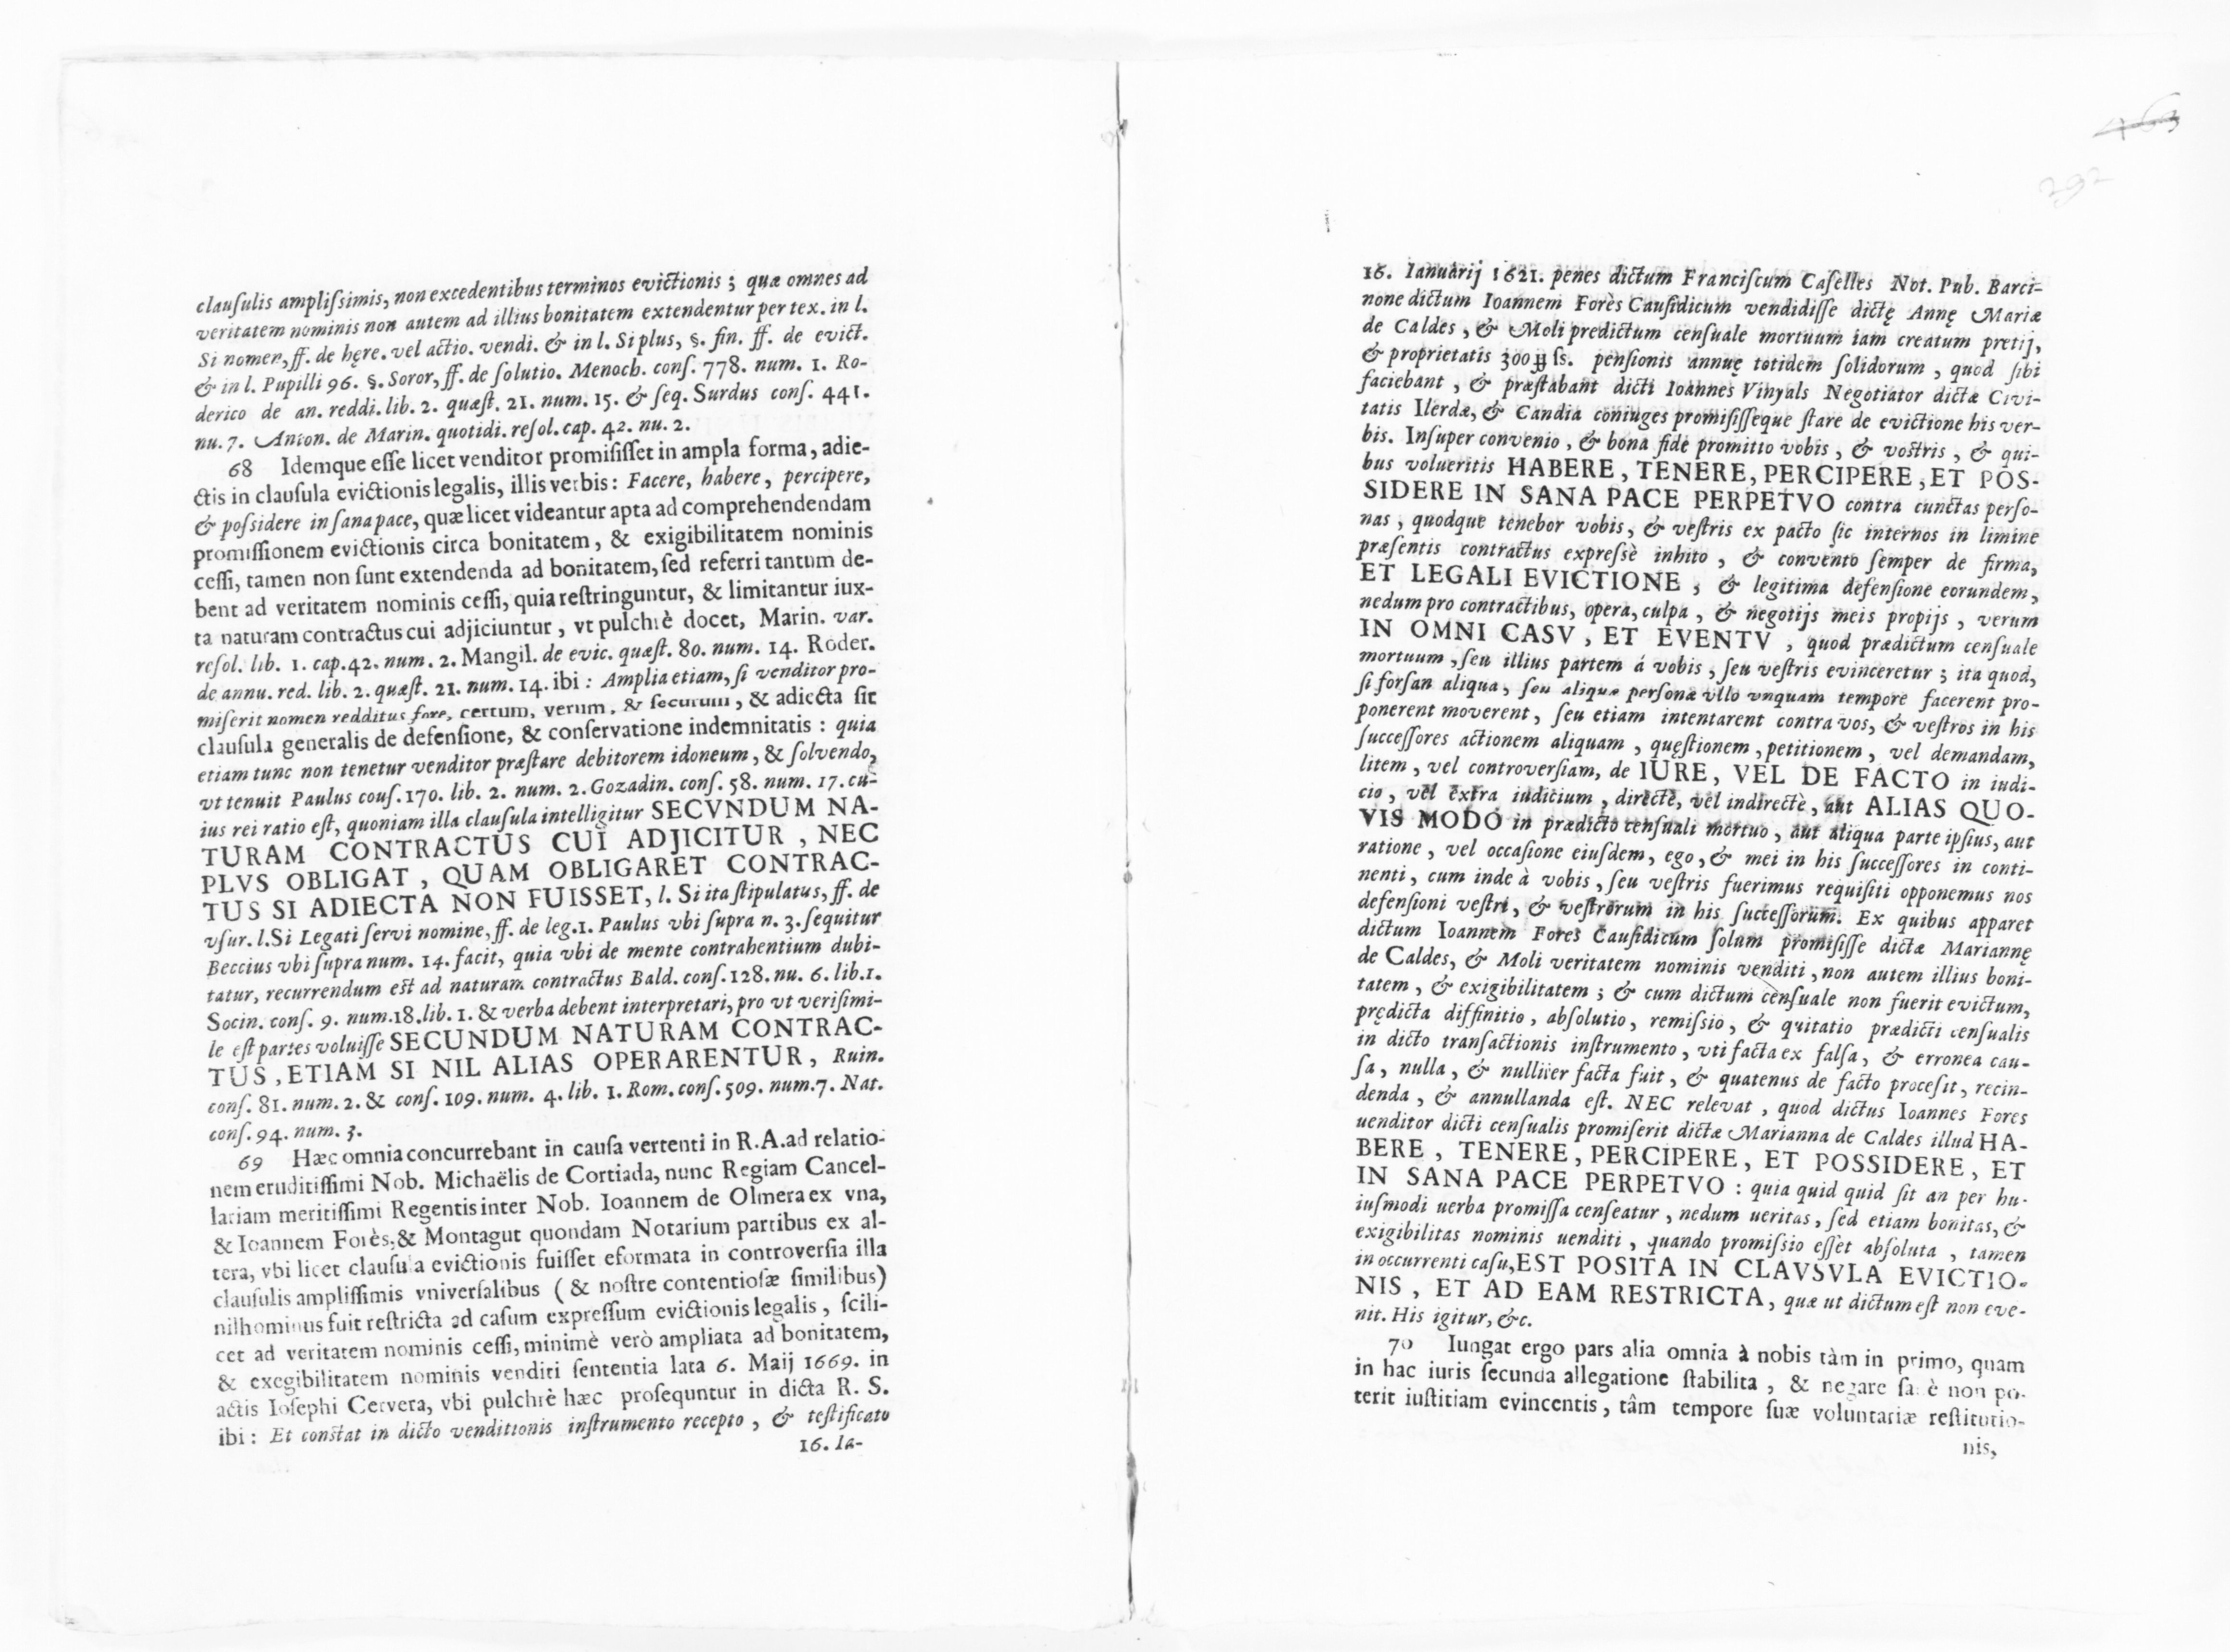 clauſulis ampliſsimis, non excedentibus terminos evictionis ; quæ omnes ad
veritatem nominis non autem ad illius bonitatem extendentur per tex. in l.
Si nomen, ff. de hęre. vel actio. vendi. & in l. Si plus, §. fin. ff. de evict.
& in l. Pupilli 96. §. Soror, ff. de ſolutio. Menoch. conſ. 778. num. 1. Ro-
derico de an. reddi. lib. 2. quæſt. 21. num. 15. & ſeq. Surdus conſ. 441.
nu. 7. Anton. de Marin. quotidi. reſol. cap. 42. nu. 2.
68 Idemque eſſe licet venditor promiſiſſet in ampla forma, adie-
ctis in clauſula evictionis legalis, illis verbis : Facere, habere, percipere,
& poſsidere in ſana pace, quæ licet videantur apta ad comprehendendam
promiſſionem evictionis circa bonitatem, & exigibilitatem nominis
ceſſi, tamen non ſunt extendenda ad bonitatem, ſed referri tantum de-
bent ad veritatem nominis ceſſi, quia reſtringuntur, & limitantur iux-
ta naturam contractus cui adjiciuntur, vt pulchrè docet, Marin. var.
reſol. lib. 1. cap. 42. num. 2. Mangil. de evic. quæſt. 80. num. 14. Roder.
de annu. red. lib. 2. quæſt. 21. num. 14. ibi : Amplia etiam, ſi venditor pro-
miſerit nomen redditus fore, certum, verum, & ſecurum, & adiecta ſit
clauſula generalis de defenſione, & conſervatione indemnitatis : quia
etiam tunc non tenetur venditor præſtare debitorem idoneum, & ſolvendo,
vt tenuit Paulus couſ. 170. lib. 2. num. 2. Gozadin. conſ. 58. num. 17. cu-
ius rei ratio eſt, quoniam illa clauſula intelligitur SECVNDUM NA-
TURAM CONTRACTUS CUI ADJICITUR , NEC
PLVS OBLIGAT , QUAM OBLIGARET CONTRAC-
TUS SI ADIECTA NON FUISSET, l. Si ita ſtipulatus, ff. de
vſur. l. Si Legati ſervi nomine, ff. de leg. 1. Paulus vbi ſupra n. 3. ſequitur
Beccius vbi ſupra num. 14. facit, quia vbi de mente contrahentium dubi-
tatur, recurrendum eſt ad naturam contractus Bald. conſ. 128. nu. 6. lib. 1.
Socin. conſ. 9. num. 18. lib. 1. & verba debent interpretari, pro vt veriſimi-
le eſt partes voluiſſe SECUNDUM NATURAM CONTRAC-
TUS , ETIAM SI NIL ALIAS OPERARENTUR, Ruin.
conſ. 81. num. 2. & conſ. 109. num. 4. lib. 1. Rom. conſ. 509. num. 7. Nat.
conſ. 94. num. 3.
69 Hæc omnia concurrebant in cauſa vertenti in R.A. ad relatio-
nem eruditiſſimi Nob. Michaëlis de Cortiada, nunc Regiam Cancel-
lariam meritiſſimi Regentis inter Nob. Ioannem de Olmera ex vna,
& Ioannem Forès, & Montagut quondam Notarium partibus ex al-
tera, vbi licet clauſula evictionis fuiſſet eformata in controverſia illa
clauſulis ampliſſimis vniverſalibus ( & noſtre contentioſæ ſimilibus)
nilhominus fuit reſtricta ad caſum expreſſum evictionis legalis, ſcili-
cet ad veritatem nominis ceſſi, minimè verò ampliata ad bonitatem,
& exegibilitatem nominis venditi ſententia lata 6. Maij 1669. in
actis Ioſephi Cervera, vbi pulchrè hæc proſequntur in dicta R. S.
ibi : Et conſtat in dicto venditionis inſtrumento recepto, & teſtificato
16. Ia-
292
16. Ianuarij 1621. penes dictum Franciſcum Caſelles Not. Pub. Barci-
none dictum Ioannem Forès Cauſidicum vendidiſſe dictę Annę Mariæ
de Caldes, & Moli predictum cenſuale mortuum iam creatum pretij,
& proprietatis 300 ſs. penſionis annuę totidem ſolidorum, quod ſibi
faciebant, & præſtabant dicti Ioannes Vinyals Negotiator dictæ Civi-
tatis Ilerdæ, & Candia coniuges promiſiſſeque ſtare de evictione his ver-
bis. Inſuper convenio, & bona fide promitto vobis, & voſtris, & qui-
bus volueritis HABERE, TENERE, PERCIPERE, ET POS-
SIDERE IN SANA PACE PERPETVO contra cunctas perſo-
nas, quodque tenebor vobis, & veſtris ex pacto ſic internos in limine
præſentis contractus expreſsè inhito, & convento ſemper de firma,
ET LEGALI EVICTIONE, & legitima defenſione eorundem,
nedum pro contractibus, opera, culpa, & negotijs meis propijs, verum
IN OMNI CASV, ET EVENTV, quod prædictum cenſuale
mortuum, ſeu illius partem á vobis, ſeu veſtris evinceretur ; ita quod,
ſi forſan aliqua, ſeu aliquæ perſonæ vllo vnquam tempore facerent pro-
ponerent moverent, ſeu etiam intentarent contra vos, & veſtros in his
ſucceſſores actionem aliquam, quęſtionem, petitionem, vel demandam,
litem, vel controverſiam, de IURE, VEL DE FACTO in iudi-
cio, vel extra iudicium, directè, vel indirectè, aut ALIAS QUO-
VIS MODO in prædicto cenſuali mortuo, aut aliqua parte ipſius, aut
ratione, vel occaſione eiuſdem, ego, & mei in his ſucceſſores in conti-
nenti, cum inde à vobis, ſeu veſtris fuerimus requiſiti opponemus nos
defenſioni veſtri, & veſtrorum in his ſucceſſorum. Ex quibus apparet
dictum Ioannem Fores Cauſidicum ſolum promiſiſſe dictæ Mariannę
de Caldes, & Moli veritatem nominis venditi, non autem illius boni-
tatem, & exigibilitatem ; & cum dictum cenſuale non fuerit evictum,
prędicta diffinitio, abſolutio, remiſsio, & quitatio prædicti cenſualis
in dicto tranſactionis inſtrumento, vti facta ex falſa, & erronea cau-
ſa, nulla, & nulliter facta fuit, & quatenus de facto proceſit, recin-
denda, & annullanda eſt. NEC relevat, quod dictus Ioannes Fores
uenditor dicti cenſualis promiſerit dictæ Marianna de Caldes illud HA-
BERE, TENERE, PERCIPERE, ET POSSIDERE, ET
IN SANA PACE PERPETVO : quia quid quid ſit an per hu-
iuſmodi uerba promiſſa cenſeatur, nedum ueritas, ſed etiam bonitas, &
exigibilitas nominis uenditi, quando promiſsio eſſet abſoluta, tamen
in occurrenti caſu, EST POSITA IN CLAVSVLA EVICTIO-
NIS, ET AD EAM RESTRICTA, quæ ut dictum eſt non eve-
nit. His igitur, &c.
70 Iungat ergo pars alia omnia à nobis tàm in primo, quam
in hac iuris ſecunda allegatione ſtabilita, & negare ſanè non po-
terit iuſtitiam evincentis, tâm tempore ſuæ voluntariæ reſtitutio-
nis,